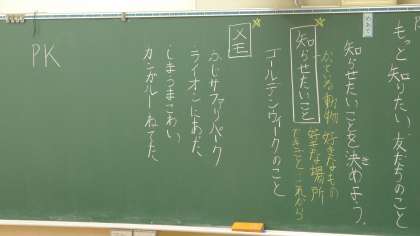 もっと知りたい、友だちのこと
めあて
知らせたいことを決めよう。
知らせたいこと
かっている動物 好きなもの
好きな場所
できごと これから
ゴールデンウィークのこと
メモ
ふじサファリパーク
ライオンにあった、
しまうまこわい、
カンガルーねてた、
PK